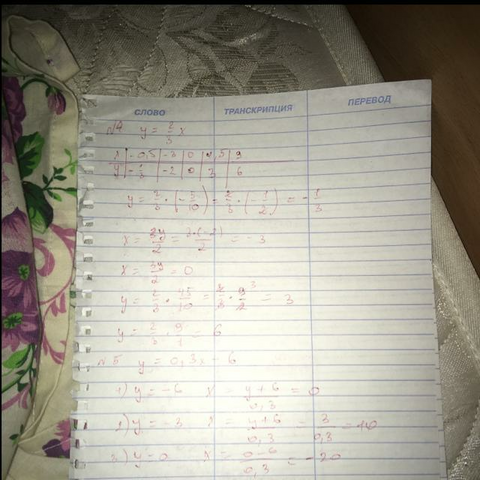 СЛОВО ТРАНСКРИПЦИЯ ПЕРЕВОД
№4 y = 2/3 x
x | -0,5 | -3 | 0 | 4,5 | 9
y | -1/3 | -2 | 0 | 3 | 6
y = 2/3 · (-5/10) = 2/3 · (-1/2) = -1/3
x = 3y/2 = 3·(-2)/2 = -3
x = 3y/2 = 0
y = 2/3 · 45/10 = 2/3 · 9/2 = 3
y = 2/3 · 9/1 = 6
№5 y = 0,3x - 6
1) y = -6 x = y+6/0,3 = 0
2) y = -3 x = y+6/0,3 = 3/0,3 = 10
3) y = 0 x = 0-6/0,3 = -20